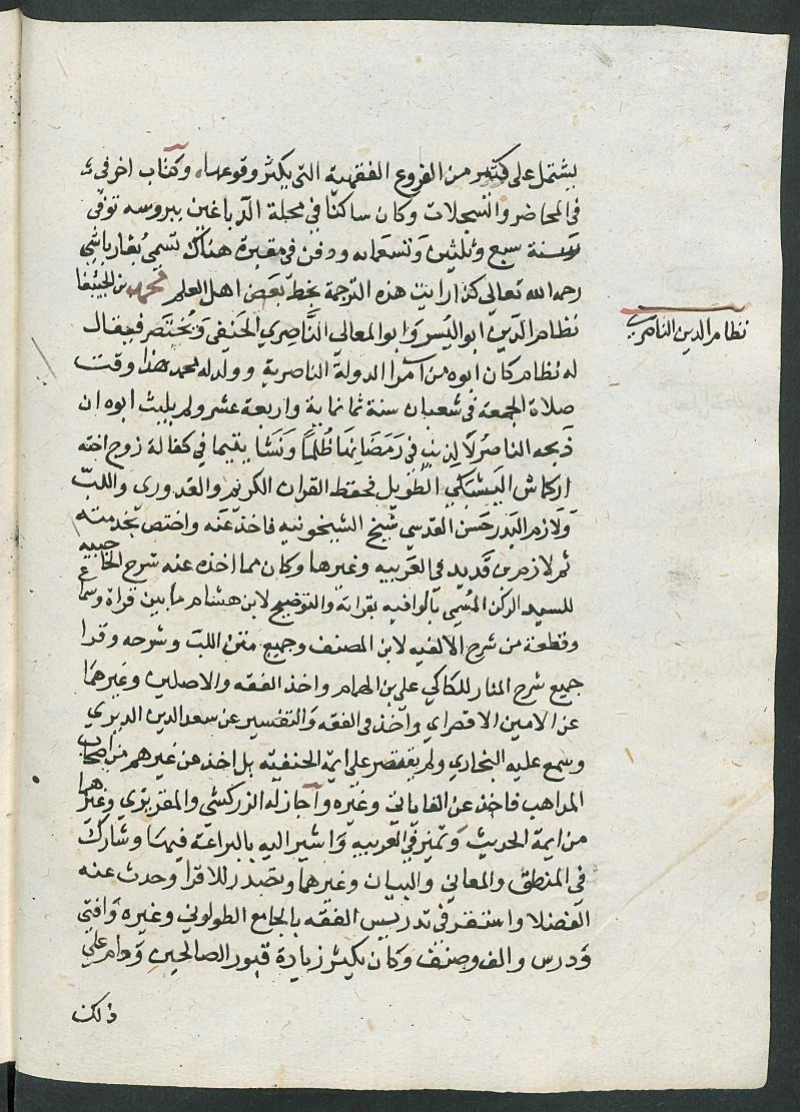 يشتمل على كثير من الفروع الفقهية التى يكثر وقوعها وكتاب اخر فى
فى المحاضر والسجلات وكان ساكنا فى محلة الدباغين ببروسه توفى
سنة سبع وثلثين وتسعمايه ودفن فى مقبرة هناك تسمى ببقار باشى
رحمه الله تعالى كذا رايت هذه الترجمة بخط بعض اهل العلم محمد بن الجيبغا
نظام الدين الناصرى
نظام الدين ابو اليسر وابو المعالى الناصرى الحنفى ويختصر فيقال
له نظام كان ابوه من امرا الدولة الناصرية وولد له محمد هذا وقت
صلاة الجمعة فى شعبان سنة ثمانماية واربعة عشر ولم يلبث ابوه ان
ذبحه الناصر لا لذنب فى رمضانها ظلما ونشا يتيما فى كفالة زوج اخته
اركماش اليشبكى الطويل فحفظ القران الكريم والقدورى واللب
ولازم البدر حسن القدسى شيخ الشيخونيه فاخذ عنه واختص بخدمته
ثم لازم بن قديد فى العربيه وغيرها وكان مما اخذه عنه شرح الحاجبيه
للسيد الركن المسمى بالوافيه بقراته والتوضيح لابن هشام ما بين قراة وسماع
وقطعة من شرح الالفيه لابن المصنف وجميع متن اللب وشرحه وقرا
جميع شرح المنار للكاكى على بن الهمام واخذ الفقه والاصلين وغيرهما
عن الامين الاقصراى واخذ فى الفقه والتفسير عن سعد الدين الديرى
وسمع عليه البخارى ولم يقتصر على ايمة الحنفيه بل اخذ عن غيرهم من اصحاب
المذاهب فاخذ عن القاياتى وغيره واجاز له الزركشى والمقريزى وغيرهما
من ايمة الحديث وتميز فى العربيه واشير اليه بالبراعة فيها وشارك
فى المنطق والمعانى والبيان وغيرهما وتصدر للاقرا وحدث عنه
الفضلا واستقر فى تدريس الفقه بالجامع الطولونى وغيره وافتى
ودرس والف وصنف وكان يكثر زيارة قبور الصالحين ودام على
ذلك